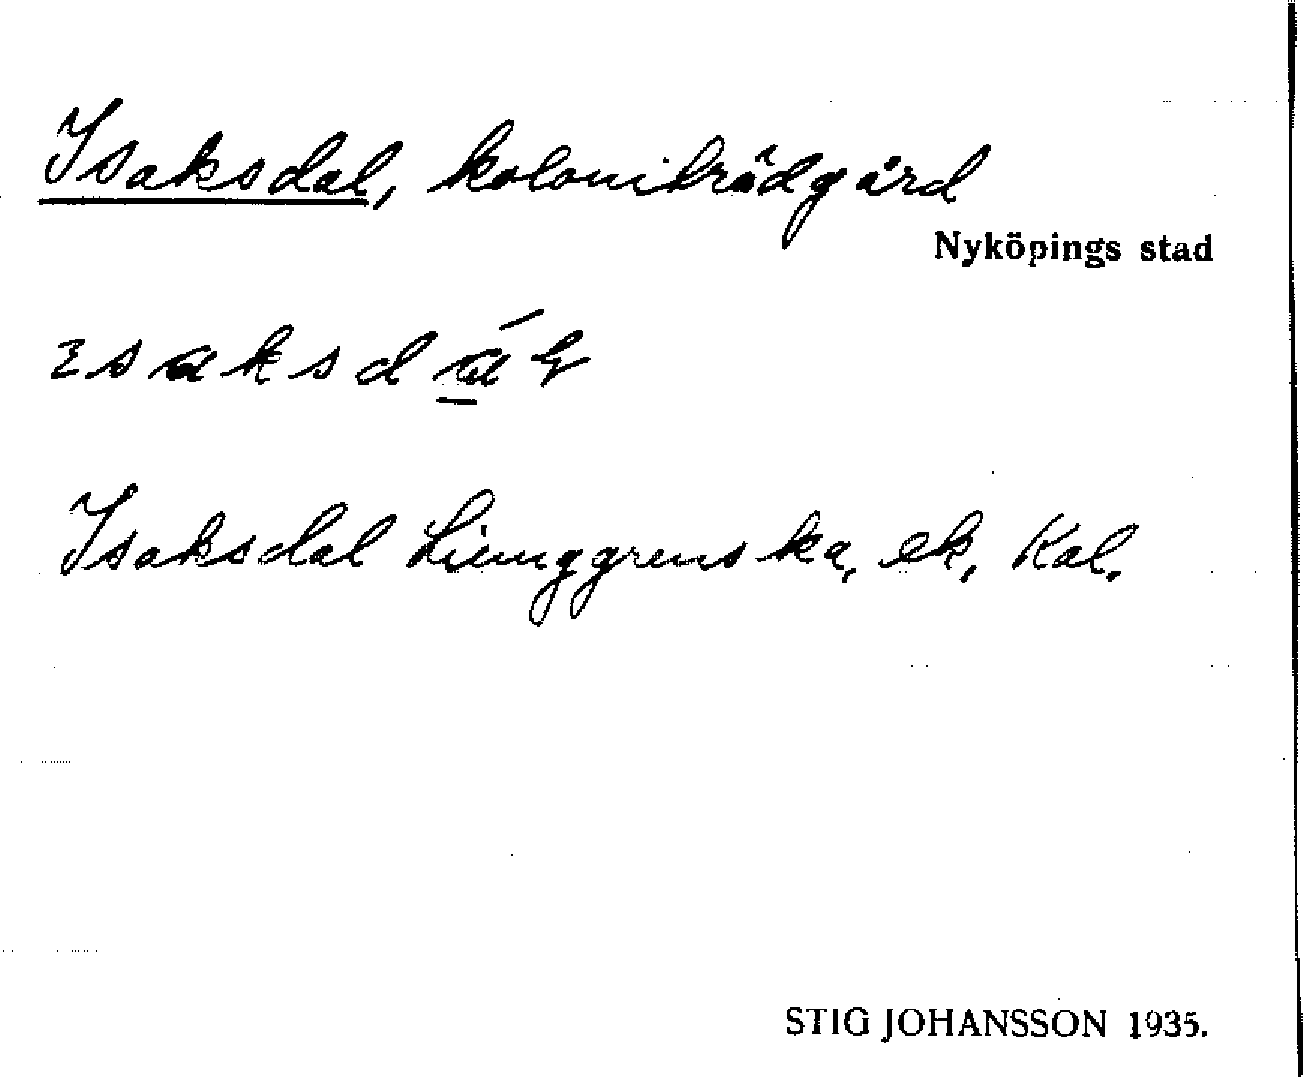 Isaksdal, koloniträdgård
Nyköpings stad
Isaksdal Ljunggrenska, ek. Kal.
STIG JOHANSSON 1935.